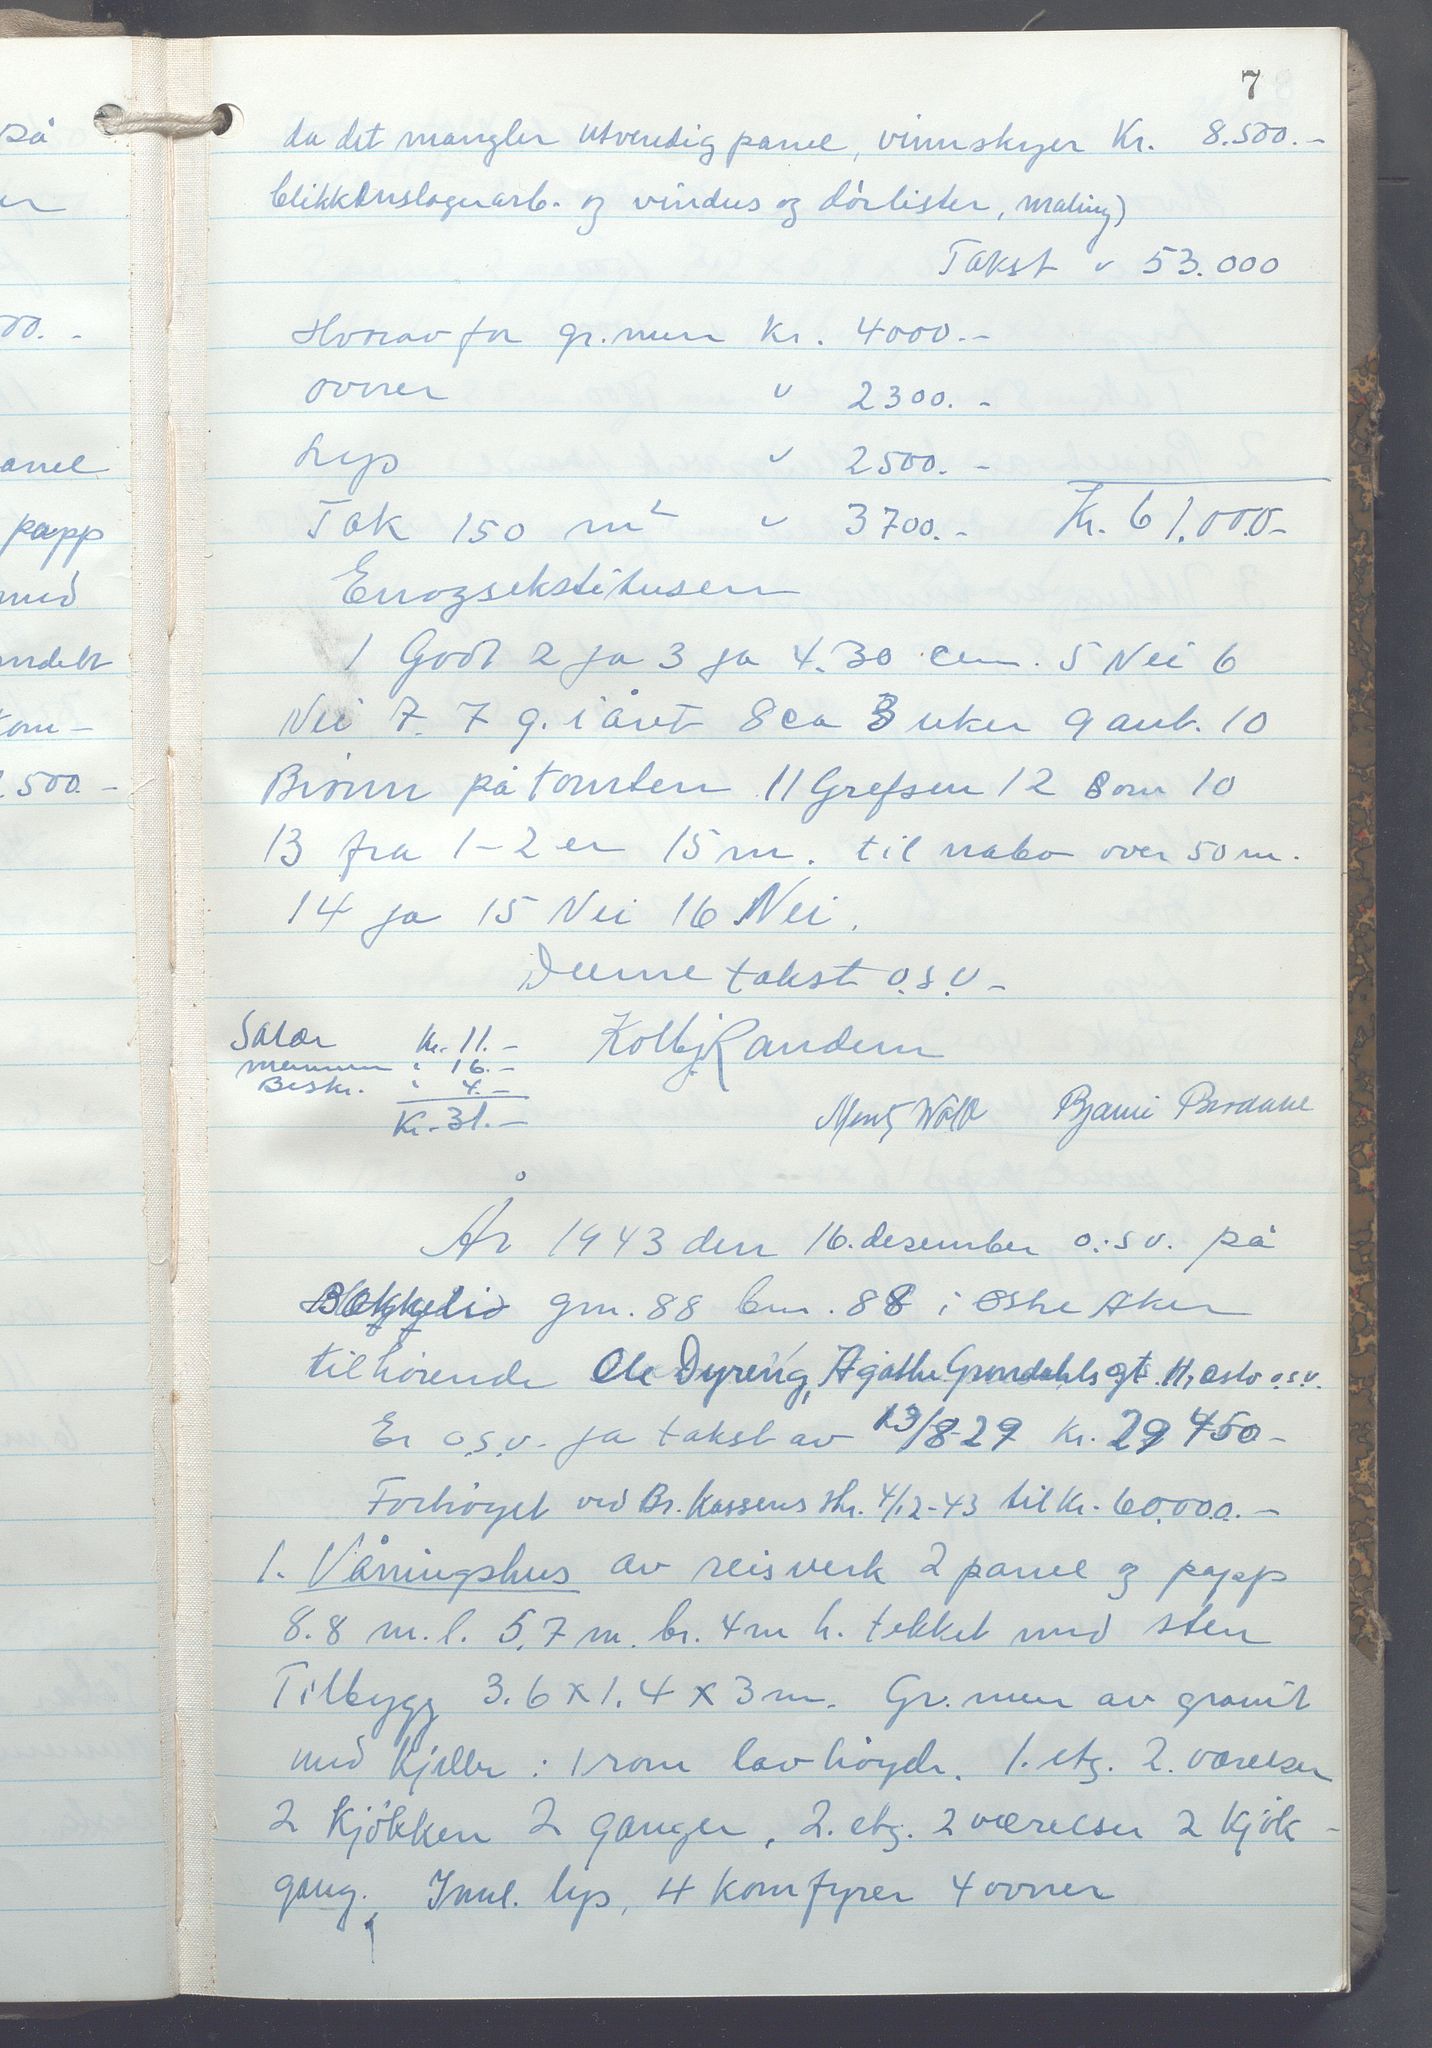 7
da det mangler utvendig panel, vinnskyer Kr. 8.500.-
blikkenslagerarb. og vindus og dörlister, maling)
Takst " 53.000
Hvorav for gr.mur Kr. 4000.-
ovner " 2300.-
Lys " 2500.-
Tak 150 m² " 3700.- Kr. 61.000.-
Enogsekstitusen
1 Godt 2 ja 3 ja 4. 30 cm. 5 Nei 6
Nei 7. 7 g. i året 8 ca 3 uker 9 anb. 10
Brönn på tomten 11 Grefsen 12 Som 10
13 fra 1-2 er 15 m. til nabo over 50 m.
14 ja 15 Nei 16 Nei.
Denne takst o.s.v-
Salær Kr. 11.-
" 16.-
Beskr. " 4.-
Kr. 31.-
Kolbj Randem
Bjarne
År 1943 den 16. desember o.s v. på
Bækkelid gnr. 88 bnr. 88 i Östre Aker
tilhörende Ole Dyreng, Agathe Gröndahls gt. 11, Oslo o.s.v.
Er o.s.v. ja takst av 13/8-29 Kr. 29 450-
Forhöyet ved Br. kassens skr. 4/12-43 til Kr. 60.000.-
1. Våningshus av reisverk 2 panel og papp
8.8 m. l. 5,7 m. br. 4 m h. tekket med sten
Tilbygg 3.6 x 1.4 x 3 m. Gr. mur av granit
med kjeller: 1 rom lav höyde. 1. etg. 2. værelser
2 kjökken 2 ganger, 2. etg. 2 værelser 2 kjök-
gang. Innl. lys, 4 komfyrer 4 ovner
så
er
00.-
anel
papp
med
ndelt
kom-
500.-